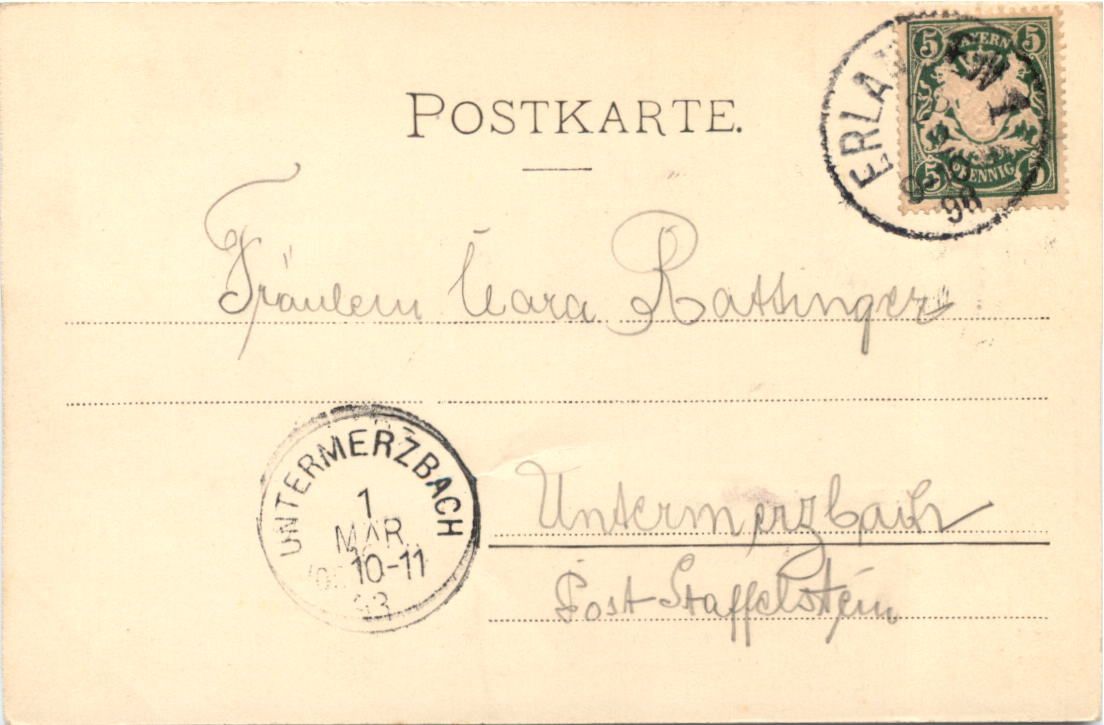 POSTKARTE.
5 BAYERN 5
5 PFENNIG 5
ERLAN
98
Fräulein Clara Rattinger
UNTERMERZBACH
1
MÄR
10-11
98
Untermerzbach
Post Staffelstein